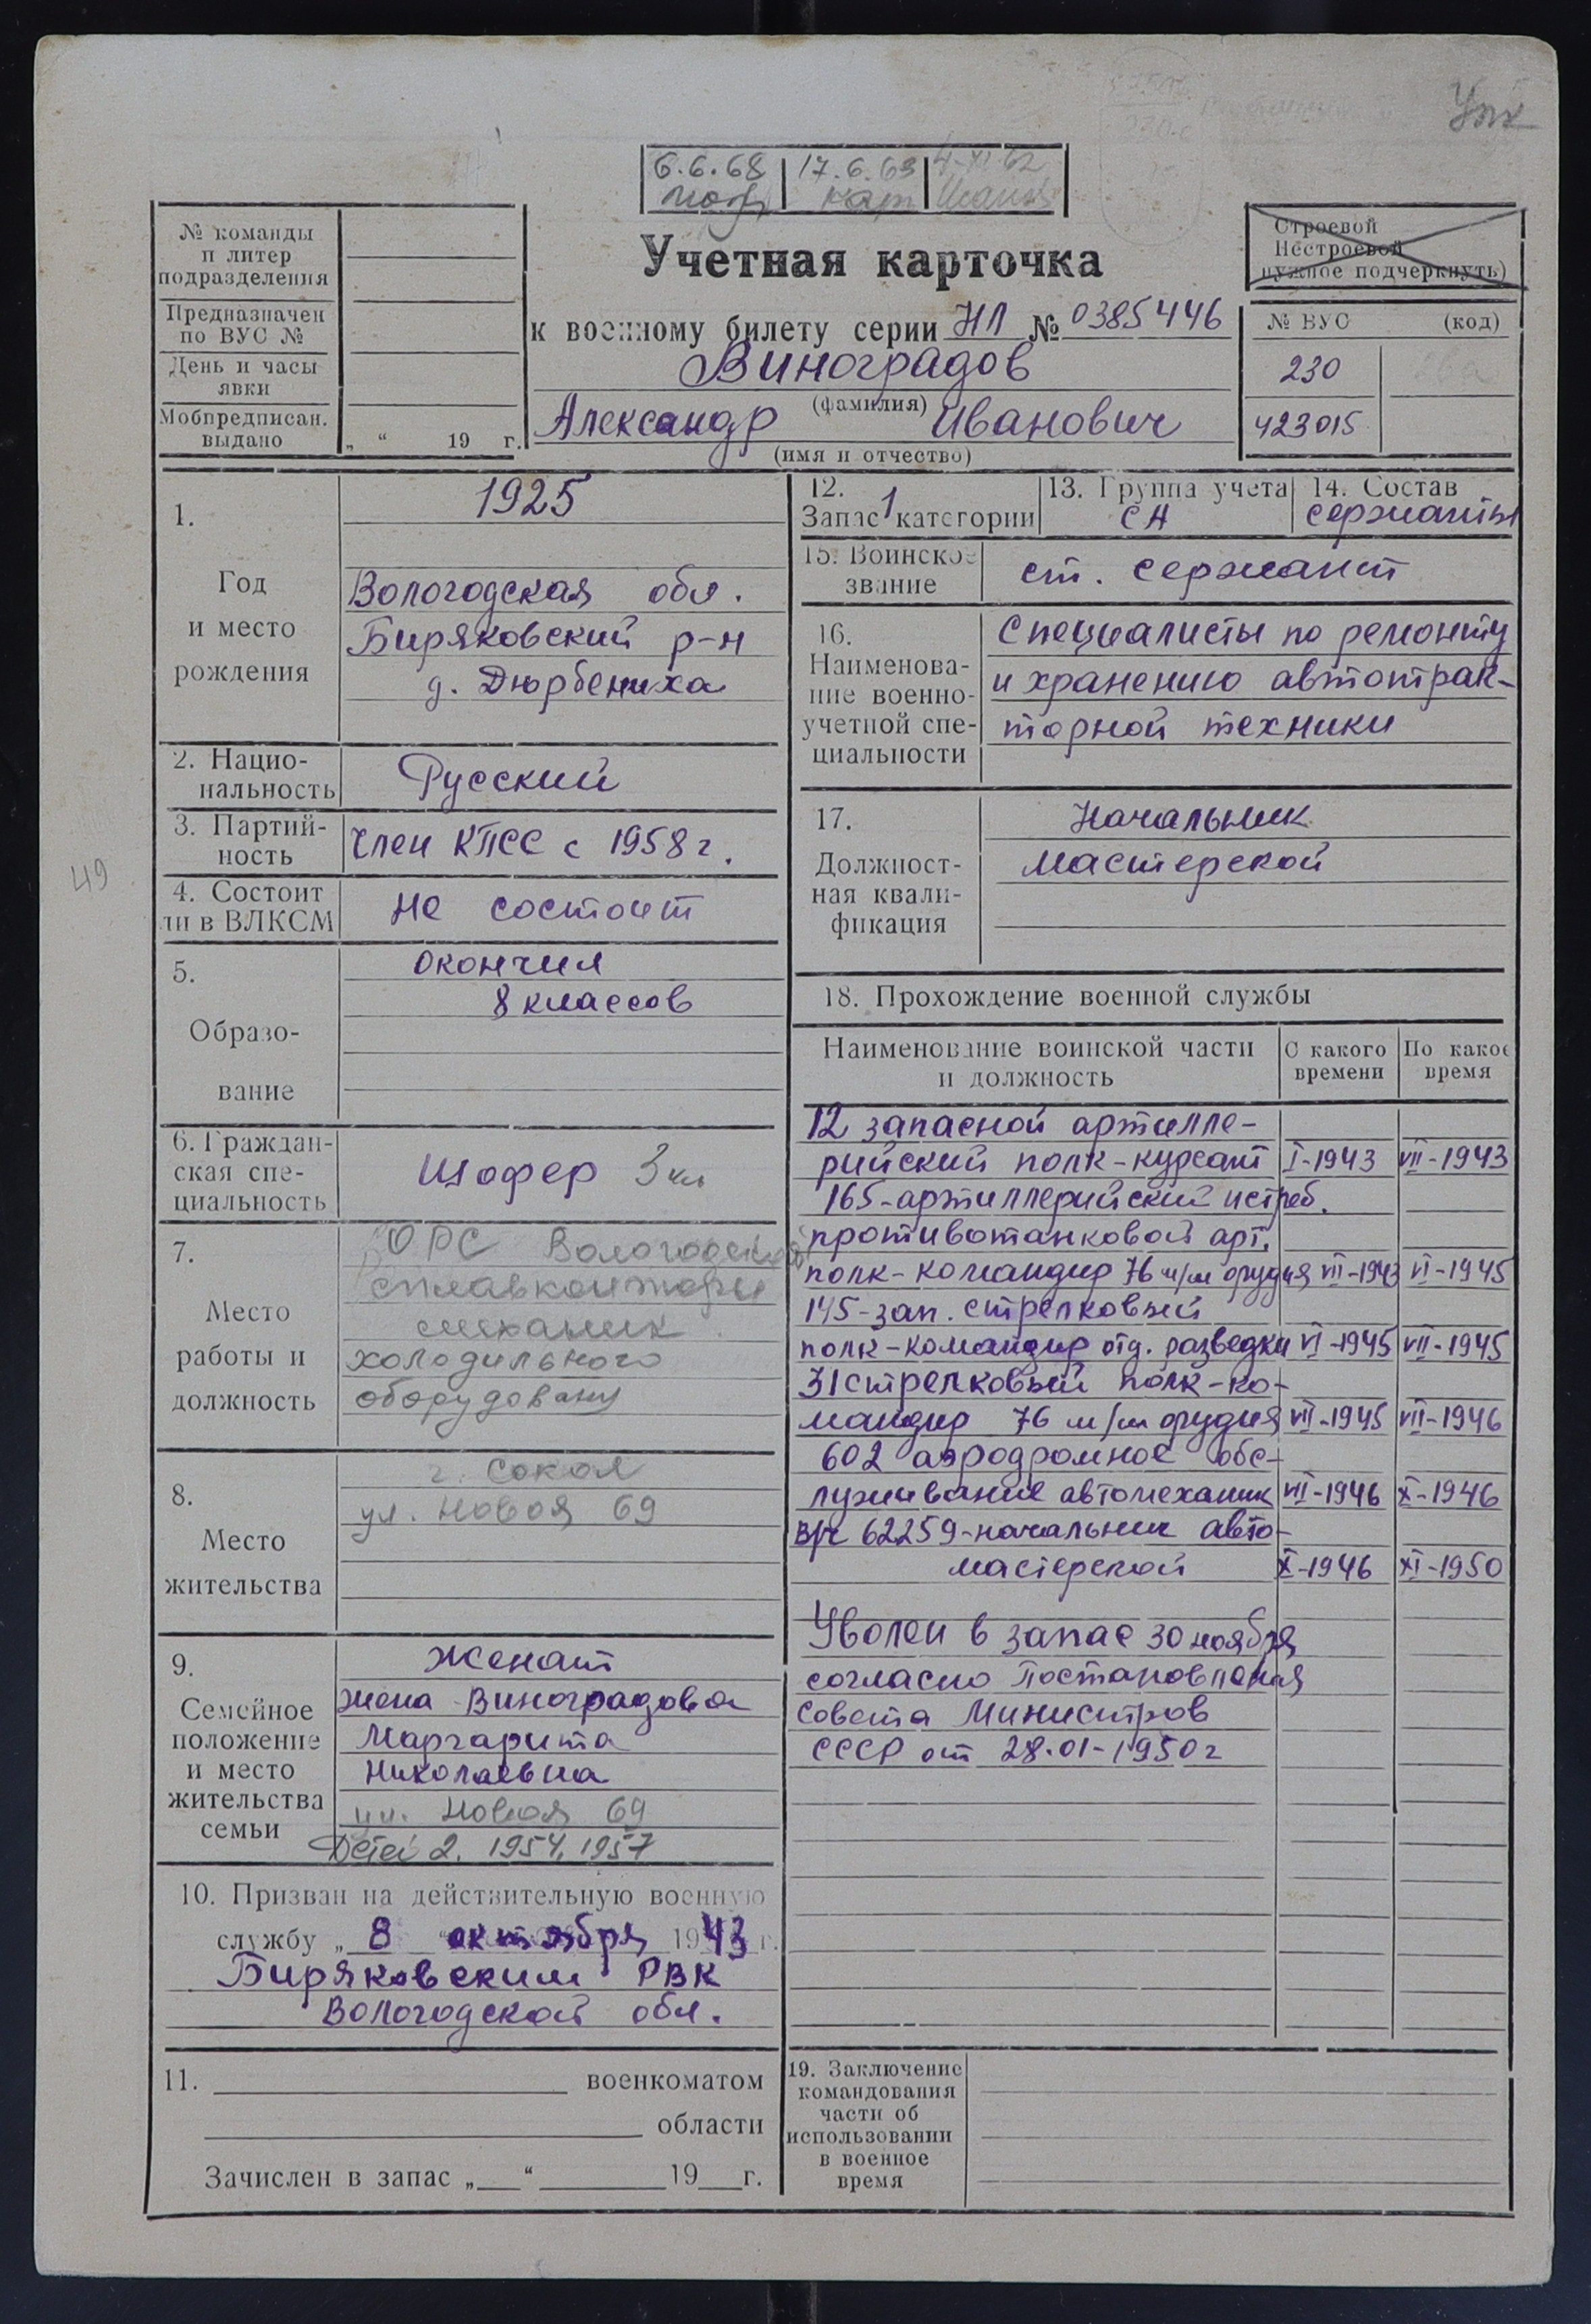 Упк
6.6.68 17.6.63 4-XI 62
№ команды
и литер
подразделения
Предназначен
по ВУС №
День и часы
явки
Мобпредписан.
выдано
„ “ 19 г.
Учетная карточка
к военному билету серии НЛ № 0385446
Виноградов
(фамилия)
Александр Иванович
(имя и отчество)
Строевой
Нестроевой
нужное подчеркнуть)
№ ВУС (код)
230
423015
1.
Год
и место
рождения
1925
Вологодская обл.
Биряковский р-н
д. Дюрбениха
2. Нацио-
нальность
Русский
3. Партий-
ность
Член КПСС с 1958 г.
49
4. Состоит
ли в ВЛКСМ
Не состоит
5.
Образо-
вание
окончил
8 классов
6. Граждан-
ская спе-
циальность
Шофер 3 кл
7.
Место
работы и
должность
ОРС Вологодской
сплавконторы
механик
холодильного
оборудовану
8.
Место
жительства
г. Сокол
ул. Новая 69
9.
Семейное
положение
и место
жительства
семьи
Женат
жена - Виноградова
Маргарита
Николаевна
ул. Новая 69
Детей 2. 1954, 1957
10. Призван на действительную военную
службу „ 8 “ октября 1943 г.
Биряковским РВК
Вологодской обл.
11. военкоматом
области
Зачислен в запас „ “ 19 г.
12.
Запас 1 категории
13. Группа учета
СА
14. Состав
сержанты
15. Воинское
звание
ст. сержант
16.
Наименова-
ние военно-
учетной спе-
циальности
Специалисты по ремонту
и хранению автотрак-
торной техники
17.
Должност-
ная квали-
фикация
Начальник
мастерской
18. Прохождение военной службы
Наименование воинской части
и должность
С какого
времени
По какое
время
12 запасной артилле-
рийский полк - курсант I-1943 VII-1943
165-артиллерийский истреб.
противотанковой арт.
полк - командир 76 м/м орудия VII-1943 VI-1945
145-зап. стрелковый
полк - командир отд. разведки VI-1945 VII-1945
31 стрелковый полк - ко-
мандир 76 м/м орудия VII-1945 VII-1946
602 аэродромное обс-
луживание автомеханик VII-1946 X-1946
в/ч 62259 - начальник авто-
мастерской X-1946 XI-1950
Уволен в запас 30 ноября
согласно Постановления
Совета Министров
СССР от 28.01-1950 г
19. Заключение
командования
части об
использовании
в военное
время